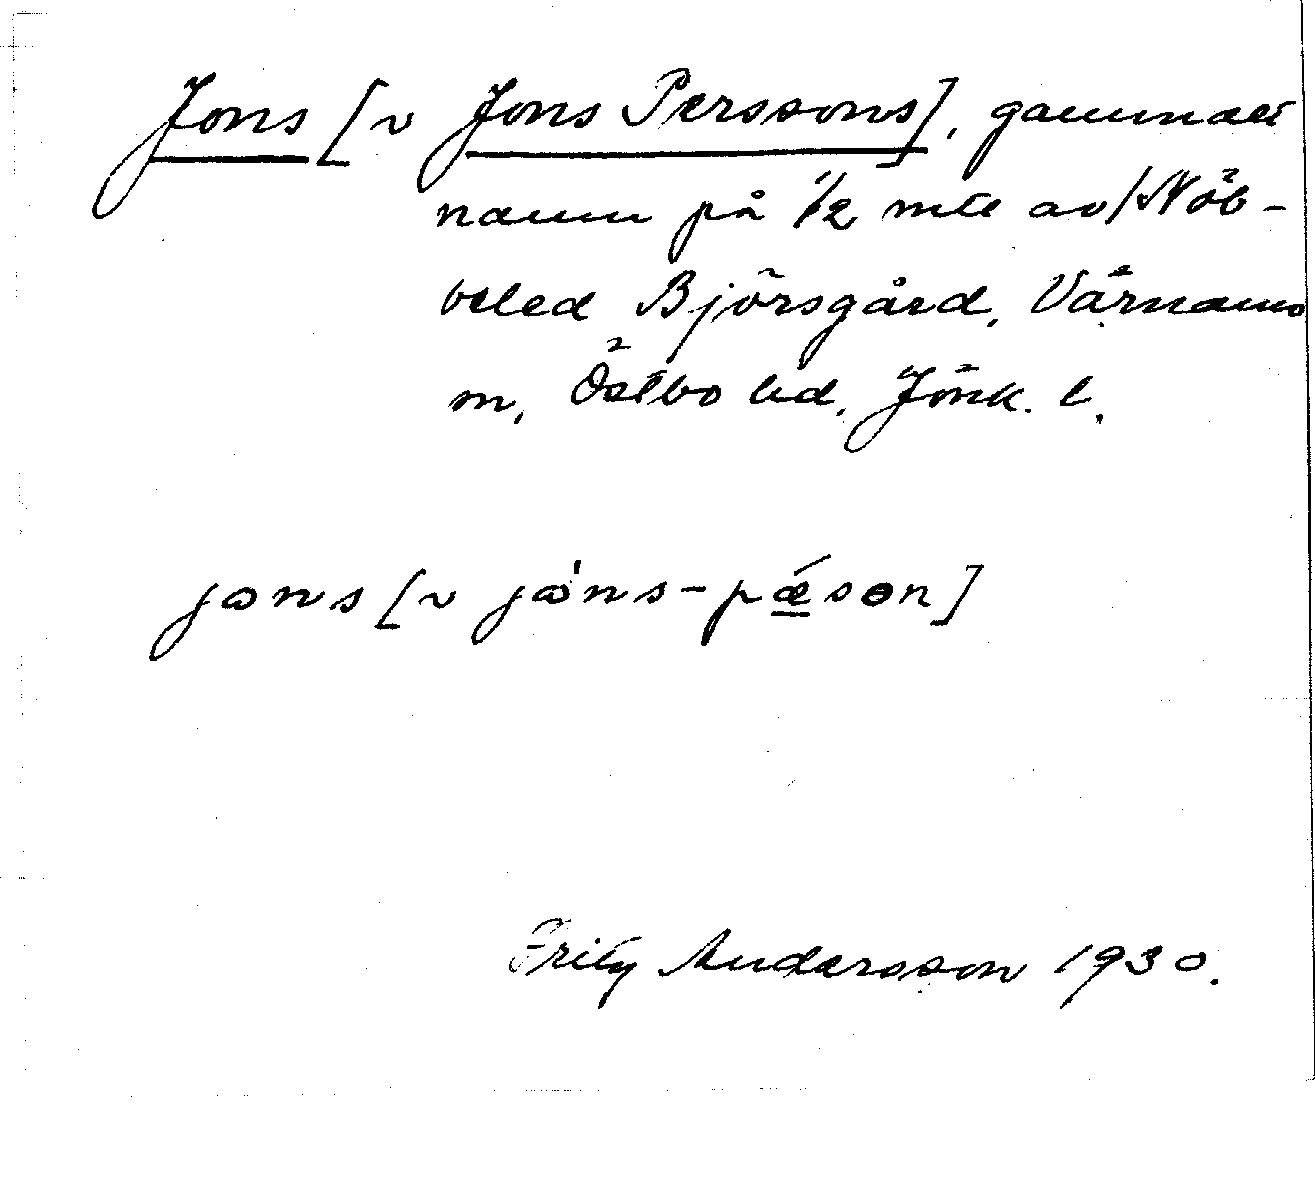 Jons [v Jons Perssons], gammalt
namn på 1/2 mtl av Nöb-
beled Björsgård, Värnamo
m, Östbo hd, Jönk. l.
jons [v jóns-pǽsen]
Fritz Andersson 1930.